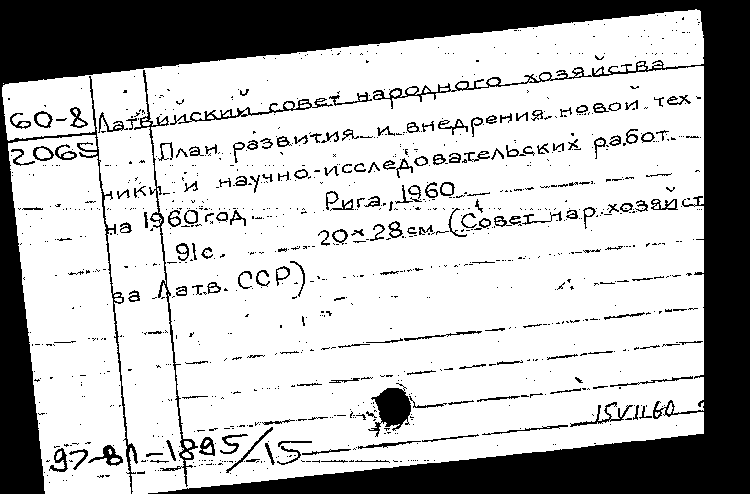 60-8 Латвийский совет народного хозяйства
2065 План развития и внедрения новой тех-
ники и научно-исследовательских работ
на 1960 год. Рига, 1960.
91с. 20×28см. (Совет нар. хозяйст
ва Латв. ССР)
15VII60
97-81-1895/15